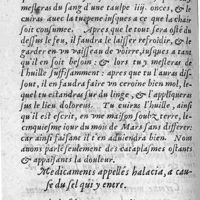 mesleras du sang d'une taulpe iiij. onces, & le
cuiras avec la tuepene jusques a ce que la chair
soit consumee. Apres que le tout sera osté du
dessus le feu, il faudra le laisser refroidir, & le
garder en un vaisseau de voirre, jusques a tant
qu'il en soit besoin; & lors tu y mesleras de
l'huille suffisamment: apres que tu l'auras dissout,
il en faudra faire un ceroine bien mol, lequel
tu estendras sur du linge, & l'appliqueras
sus le lieu doloreux. Tu cuiras l'huille, ainsi
qu'il est escrit, en une maison soubz terre, le
cinquiesme jour du mois de Mars sans differer:
car autrement faire il t'en adviendra bien. Nous
avons parlé seulement des cataplasmes ostants
& appaisants la douleur.
Medicaments appellés halacia, a cause
du sel qui y entre.